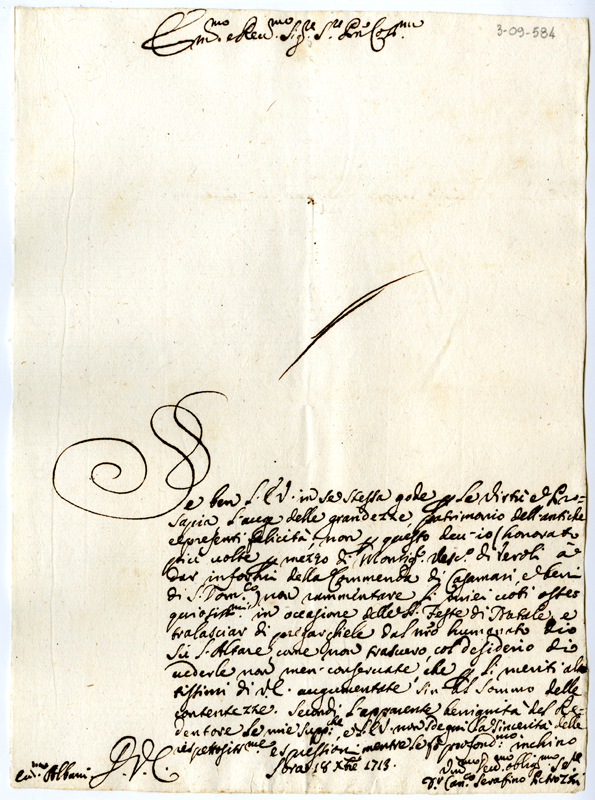 Em.mo e Rev.mo Sig.re S.re Pne Col.mo
3-09-584
Se ben S. E V. in se stessa gode p le Virtù e Pro-
sapia l'auge delle grandezze, patrimonio dell'antiche
e presenti felicità, non p questo dev-io (honorato
più volte p mezzo di Monsig.r Vesc.o di Veroli à
dar informi della Commenda di Casamari, e beni
di S. Dom.co) non rammentare li miei voti osse-
quiosiss.mi in occasione delle S. Feste di Natale, e
tralasciar di pregarghiele dal nro humanato Dio
Sù l'Altare come non trascuro, col desiderio di
vederle non men conservate, che p li meriti al-
tissimi di V.E. augumentate sin al sommo delle
contentezze. Secondi l'apparente benignità del Re-
dentore le mie suppl.che, e S. E V. non sdegni la sincerità delle
rispettosis.me espressioni mentre le fò profond.mo inchino
D. V. E.
Sora 18 Xbre 1713.
Em.mo Albani
Um.mo Dev.mo oblig.mo Se.re
Can.co Serafino